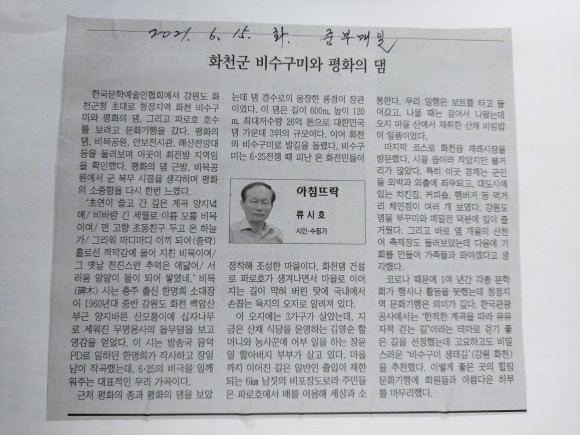 2021. 6. 15. 화. 중부매일
화천군 비수구미와 평화의 댐
한국문학예술인협회에서 강원도 화
천군청 초대로 청정지역 화천 비수구
미와 평화의 댐, 그리고 파로호 호수
를 보려고 문화기행을 갔다. 평화의
댐, 비목공원, 안보전시관, 해산전망대
등을 둘러보며 이곳이 최전방 지역임
을 확인했다. 평화의 댐 근방, 비목공
원에서 군 복무 시절을 생각하며 평화
의 소중함을 다시 한번 느꼈다.
'초연이 쓸고 간 깊은 계곡 양지녘
에/ 비바람 긴 세월로 이름 모를 비목
이여/ 먼 고향 초동친구 두고 온 하늘
가/ 그리워 마디마디 이끼 되어(중략)
홀로선 적막감에 울어 지친 비목이여/
그 옛날 천진스런 추억은 애달퍼/ 서
러움 알알이 돌이 되어 쌓였네.' 비목
(碑木) 시는 충주 출신 한명희 소대장
이 1960년대 중반 강원도 화천 백암산
부근 양지바른 산모퉁이에 십자나무
로 세워진 무명용사의 돌무덤을 보고
영감을 얻었다. 이 시는 방송국 음악
PD로 일하던 한명희가 작사하고 장일
남이 작곡했는데, 6·25의 비극을 일깨
워주는 대표적인 우리 가곡이다.
근처 평화의 종과 평화의 댐을 보았
는데 댐 경수로의 웅장한 풍경이 장관
이었다. 이 댐은 길이 600m, 높이 120
m, 최대저수량 26억 톤으로 대한민국
댐 가운데 3위의 규모이다. 이어 화천
의 비수구미로 발길을 돌렸다. 비수구
미는 6·25전쟁 때 피난 온 화전민들이
아침뜨락
류시호
시인·수필가
정착해 조성한 마을이다. 화천댐 건설
로 파로호가 생겨나면서 마을로 이어
지는 길이 막혀 버린 탓에 국내에서
손꼽는 육지의 오지로 알려져 있다.
이 오지에는 3가구가 살았는데, 지
금은 산채 식당을 운영하는 김영순 할
머니와 농사꾼에 어부 일을 하는 장윤
일 할아버지 부부가 살고 있다. 마을
까지 이어진 길은 일반인 출입이 제한
되는 6㎞ 남짓의 비포장도로라 주민들
은 파로호에서 배를 이용해 세상과 소
통한다. 우리 일행은 보트를 타고 들
어갔고, 나올 때는 걸어서 나왔는데
오지 마을 산에서 채취한 산채 비빔밥
이 일품이었다.
마지막 코스로 화천읍 재래시장을
방문했다. 시골 읍이라 작았지만 볼거
리가 많았다. 특히 이곳 경제는 군인
들 외박과 외출에 좌우되고, 대도시에
있는 치킨집, 커피숍, 햄버거 등 먹거
리 체인점이 여러 개 보였다. 강원도
명물 부꾸미와 메밀전 덕분에 입이 즐
거웠다. 그리고 바로 옆 개울의 산천
어 축제장도 둘러보았는데 다음에 기
회를 만들어 가족들과 와야겠다고 생
각했다.
코로나 때문에 1여 년간 각종 문학
회가 행사나 활동을 못했는데 청정지
역 문화기행은 의미가 깊다. 한국관광
공사에서는 '한적한 계곡을 따라 유유
자적 걷는 길'이라는 테마로 걷기 좋
은 길을 선정했는데 고요하고도 비밀
스러운 '비수구미 생태길'(강원 화천)
을 추천했다. 이렇게 좋은 곳의 힐링
문화기행에 회원들과 아름다운 하루
를 마무리했다.